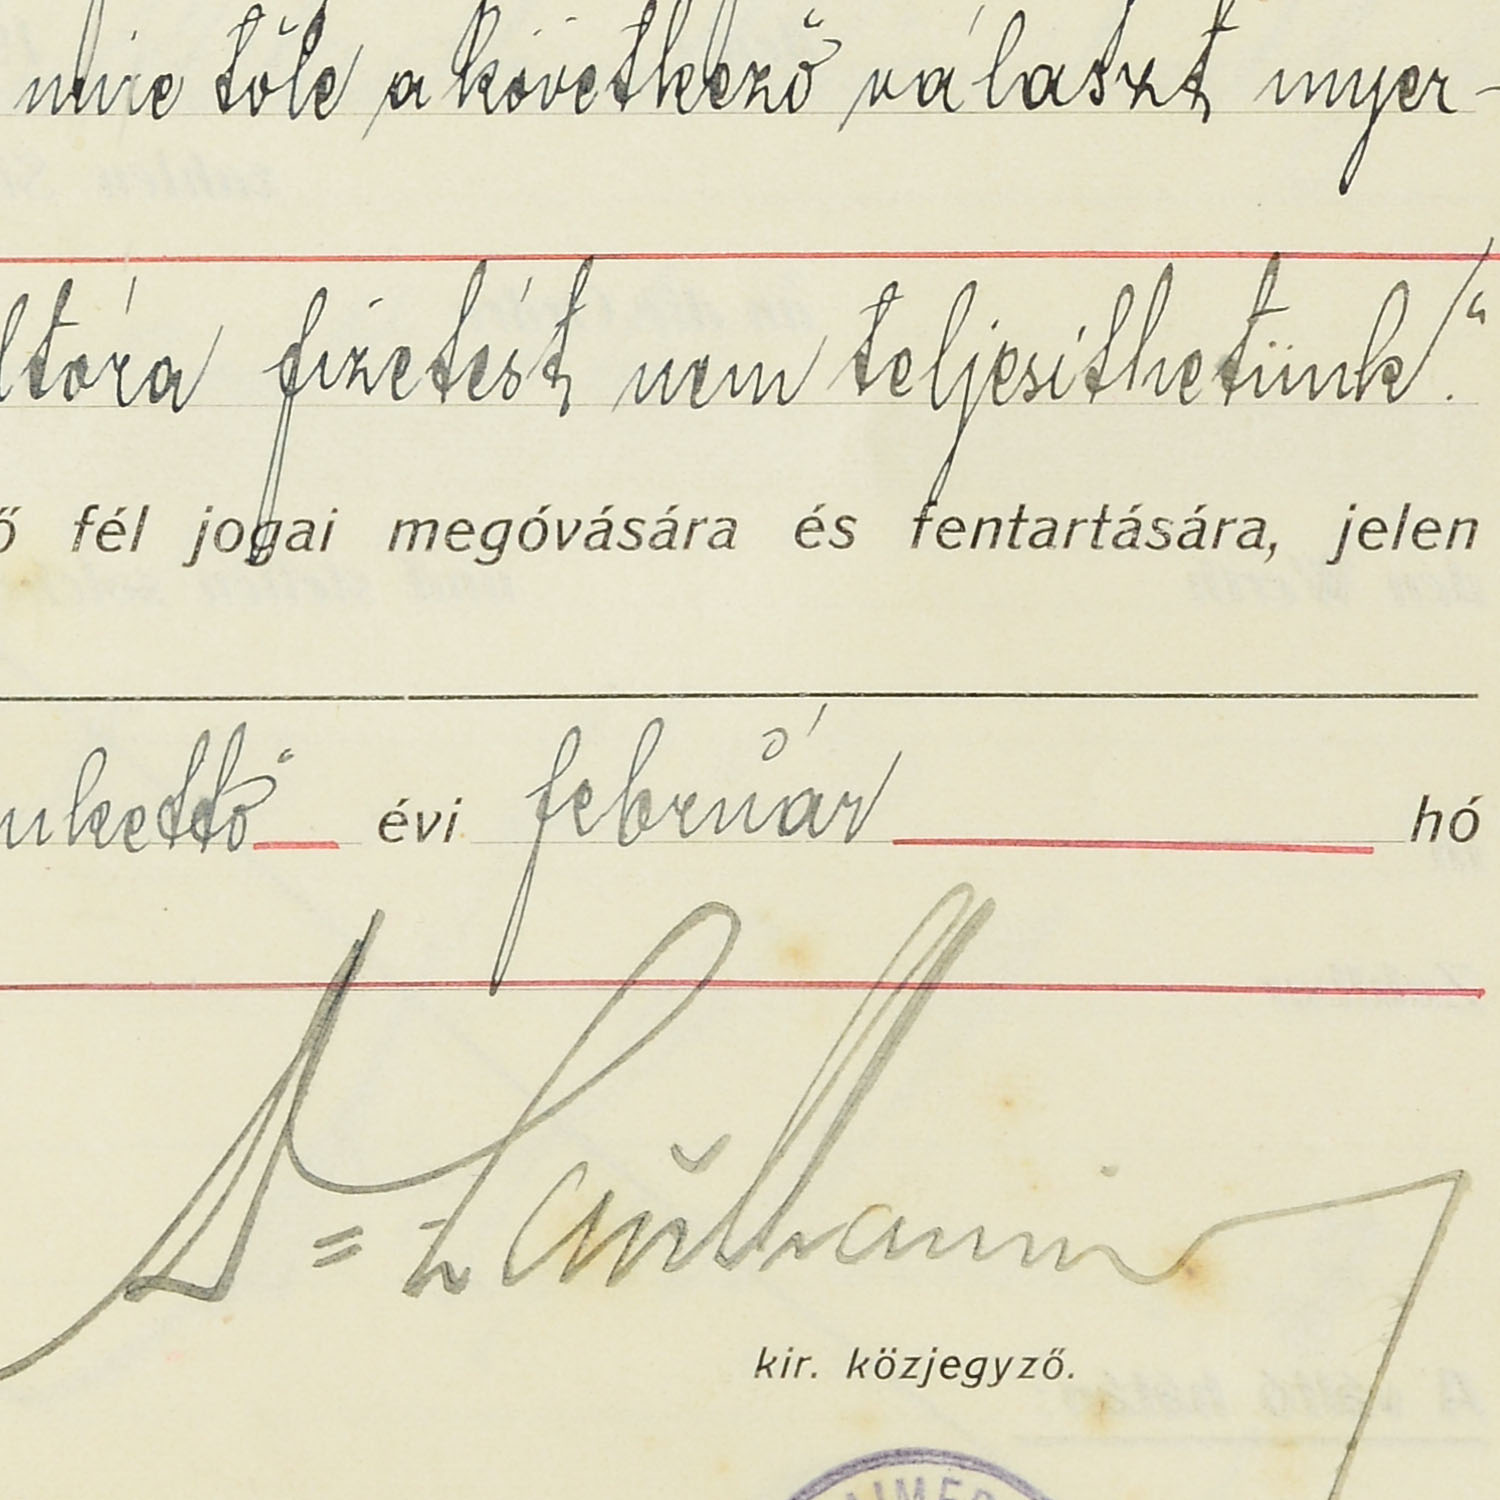 mire tőle a következő választ nyer-
fizetést nem teljesíthetünk."
fél jogai megóvására és fentartására, jelen
évi február hó
kir. közjegyző.